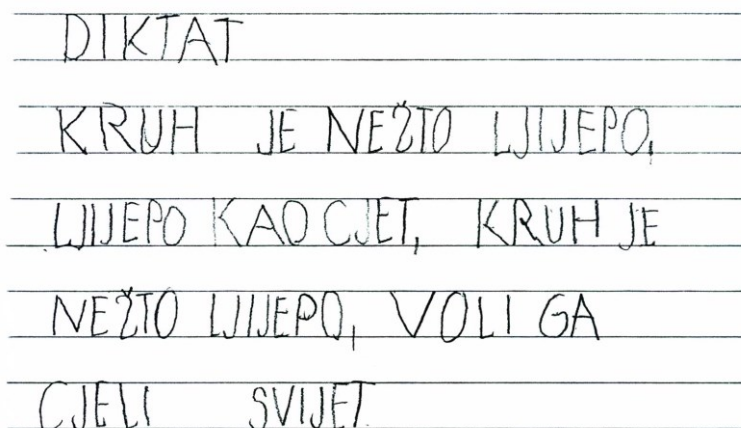 DIKTAT
KRUH JE NEŽTO LJIJEPO,
LJIJEPO KAO CJET, KRUH JE
NEŽTO LJIJEPO, VOLI GA
CJELI SVIJET.